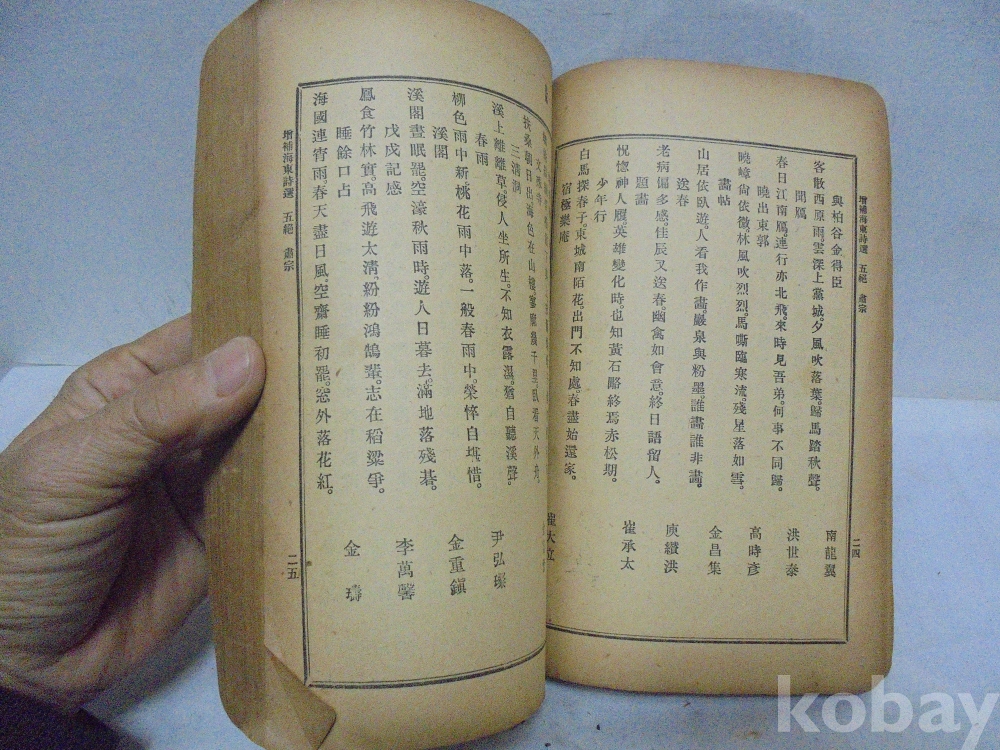 增補海東詩選 五絕 肅宗
二四
與柏谷金得臣
南龍翼
客散西原雨。雲深上黨城。夕風吹落葉。歸馬踏秋聲。
聞鴈
洪世泰
春日江南鴈。連行亦北飛。來時見吾弟。何事不同歸。
曉出東郭
高時彥
曉嶂尙依微。林風吹烈烈。馬嘶臨寒流。殘星落如雪。
畵帖
金昌集
山居依臥遊。人看我作畵。巖泉與粉墨。誰畵誰非畵。
送春
庾纘洪
老病偏多感。佳辰又送春。幽禽如會意。終日語留人。
題畵
崔承太
怳惚神人履。英雄變化時。也知黃石略。終焉赤松期。
少年行
崔大立
白馬探春子。東城南陌花。出門不知處。春盡始還家。
宿極樂庵
扶桑朝日出。海色在山
三淸洞
尹弘璨
溪上離離草。侵人坐所生。不知衣露濕。猶自聽溪聲。
春雨
金重鎭
柳色雨中新。桃花雨中落。一般春雨中。榮悴自堪惜。
溪閣
李萬馨
溪閣晝眠罷。空濠秋雨時。遊人日暮去。滿地落殘棊。
戊戌記感
鳳食竹林實。高飛遊太淸。紛紛鴻鵠輩。志在稻粱爭。
睡餘口占
金 壽
海國連宵雨。春天盡日風。空齋睡初罷。窓外落花紅。
增補海東詩選 五絕 肅宗
二五
kobay